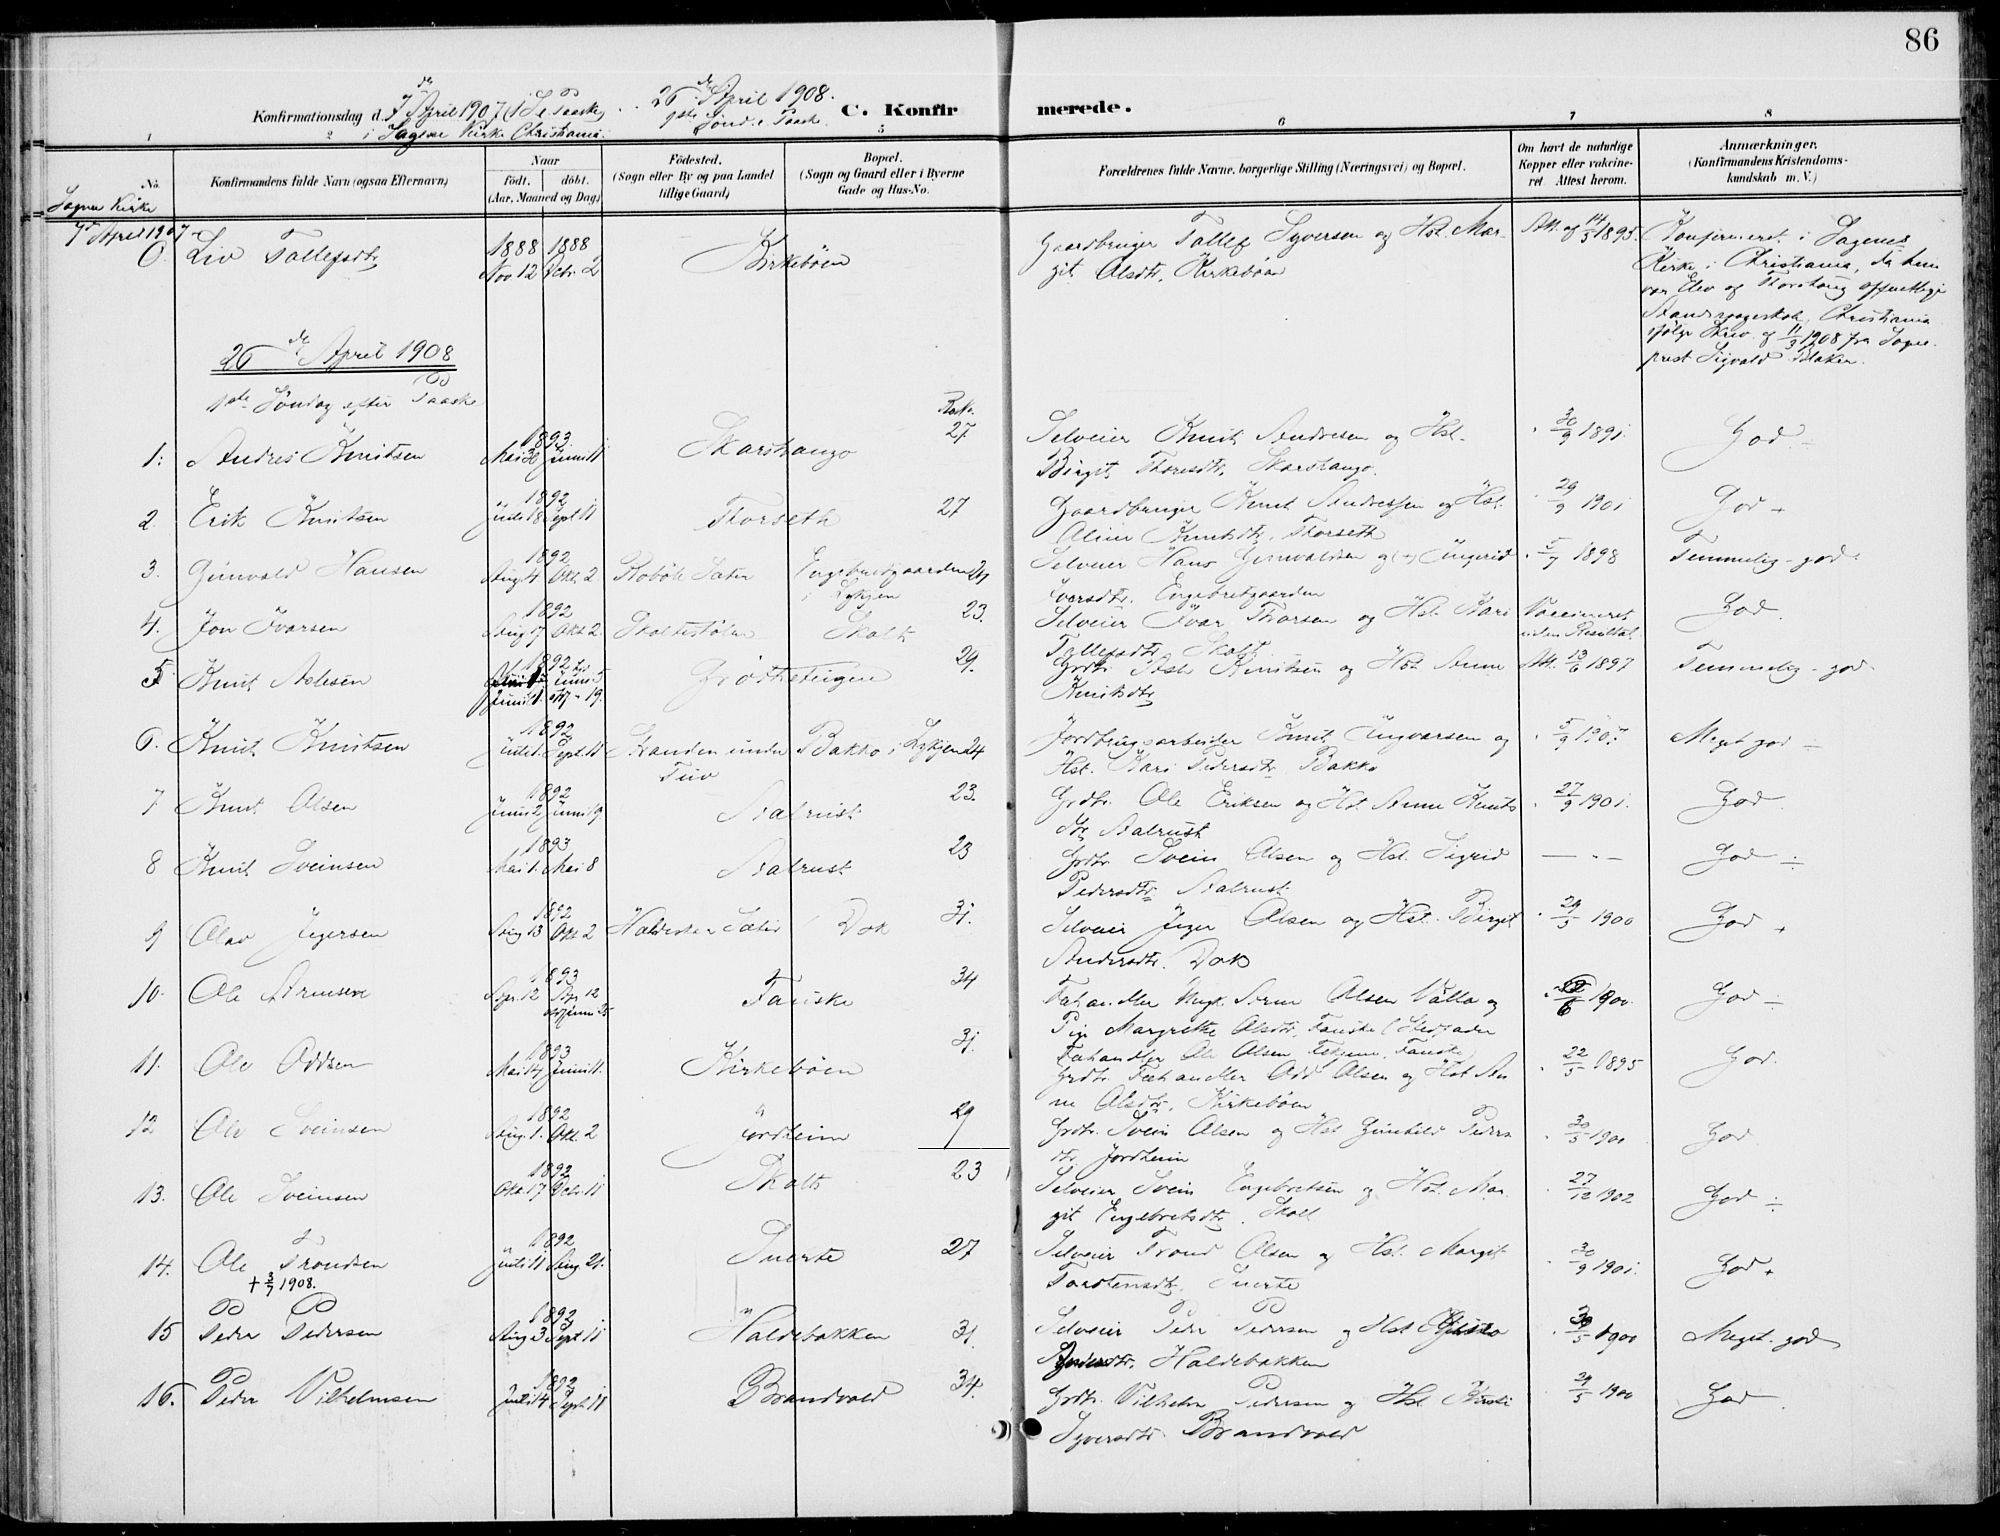 86
Konfirmationsdag d. 7 de April 1907 (1 S. e. Paaske) 26 de April 1908.
i Sagene Kirke Christiania. 1ste Sönd. e. Paaske
C. Konfir merede.
1 2 5 6 7 8
No. Konfirmandens fulde Navn (ogsaa Efternavn)
Naar födt. döbt. (Aar, Maaned og Dag)
Födested. (Sogn eller By og paa Landet tillige Gaard)
Bopæl. (Sogn og Gaard eller i Byerne Gade og Hus-No.
Forældrenes fulde Navne, borgerlige Stilling (Næringsvei) og Bopæl.
Om havt de naturlige Kopper eller vakcineret. Attest herom.
Anmærkninger. (Konfirmandens Kristendomskundskab m. V.)
Sagene Kirke
7de April 1907
0. Liv Tollefsdtr 1888 Nov 12 1888 Debr. 2 Kirkeböen Gaardbruger Tollef Syversen og Hst. Mar-
git Olsdtr, Kirkeböen Att. af 14/5 1895. Konfirmeret i Sagenes
Kirke i Christiania, da hun
var Elev af offentlige
Christiania
ifölge Skriv. af 11/3 1908 fra Sogne-
prest Sigvald Blaker.
26 de April 1908
1ste Söndag efter Paaske
1. Andres Knutsen 1893 Mai 30 Juni 11 Skarshaugo 27 Selveier Knut Andresen og Hst. 30/9 1891. God ÷
Birgit Thoresdtr, Skarshaugo.
2. Erik Knutsen 1892 Juli 18 Sept 11 Thorseth 27 Gaardbruger Knut Andresen og Hst. 29/9 1901 God +
Knutsdtr, Thorseth
3. Gunvald Hansen 1892 Aug. 4 Okt. 2 Roböle Sæter Engebretgaarden 24 Selveier Hans Gunvaldsen og (+) Ingerid 5/7 1898 Temmelig god
i Lykjen Iversdtr. Engebretgaarden
4. Jon Ivarsen 1892 Aug 17 Okt. 2 Skoltestölen Skolt 23. Selveier Ivar Thorsen og Hst. Kari Vaccineret God
Tollefsdtr Skolt uden Resultat.
5 Knut Aslesen 1892 Juni 1. Juni 5 Grötheteigen 29. Grdbr. Asle Knutsen og Hst Anne Att. 13/6 1897 Temmelig god
Knutsdtr
6. Knut Knutsen 1892 Juli 1. Sept. 11 Stranden under Bakko i Lykjen 24 Jordbrugsarbeider Knut Ingvarsen og 5/9 1907 Meget god ÷
Tuv Hst. Kari Pedersdtr Bakko
7 Knut Olsen 1892 Juni 2 Juni 19 Aalrust 23. Grdbr. Ole Eriksen og Hst Anne Knuts 27/9 1901. God
dtr Aalrust
8 Knut Sveinsen 1893 Mai 1. Mai 8 Aalrust 23 Grdbr. Svein Olsen og Hst. Sigrid — " — God ÷
Pedersdtr Aalrust
9 Olav Jegersen 1892 Aug 13 Okt 2 Sæter Dok 31. Selveier Jeger Olsen og Hst. Birgit 29/5 1900 God +
Andersdtr. Dok
10. Ole Arnesen 1893 Apr. 12 Fauske 34 Fehandler Ungk. Arne Olsen Valla og 1900. God ÷
Pige Margrethe Olsdtr, Fauske (Stedfader
Fæhandler Ole Olsen Fauske)
11. Ole Oddsen 1893 Mai 14 Juni 11. Kirkeböen 31. Grdbr. Fæhandler Odd Olsen og Hst An- 22/5 1895 God.
ne Olsdtr, Kirkeböen
12 Ole Sveinsen 1892 Aug. 1. Okt. 2 Jordheim 29 Grdbr. Svein Olsen og Hst Gunhild Peders 30/5 1900 God
dtr. Jordheim
13. Ole Sveinsen 1892 Okt. 17 Debr. 11 Skolt 23 Selveier Svein Engebretsen og Hst. Mar- 27/12 1902 God ÷
git Engebretsdtr. Skolt
14. Ole Trondsen 1892 Juli 11 Aug 21. Snerte 27 Selveier Trond Olsen og Hst. Margit 30/9 1901. God +
+ 3/7 1908. Torstensdtr. Snerte
15 Peder Pedersen 1892 Aug 3 Sept 11 Haldebakken 31. Selveier Peder Pedersen og Hst 30/5 1900 Meget god
Andersdtr. Haldebakken
16. Peder Vilhelmsen 1892 Juli 14 Sept. 11 Brandvold 34. Grdbr. Vilhelm Pedersen og Hst. 29/5 1900 God
Syversdtr. Brandvold